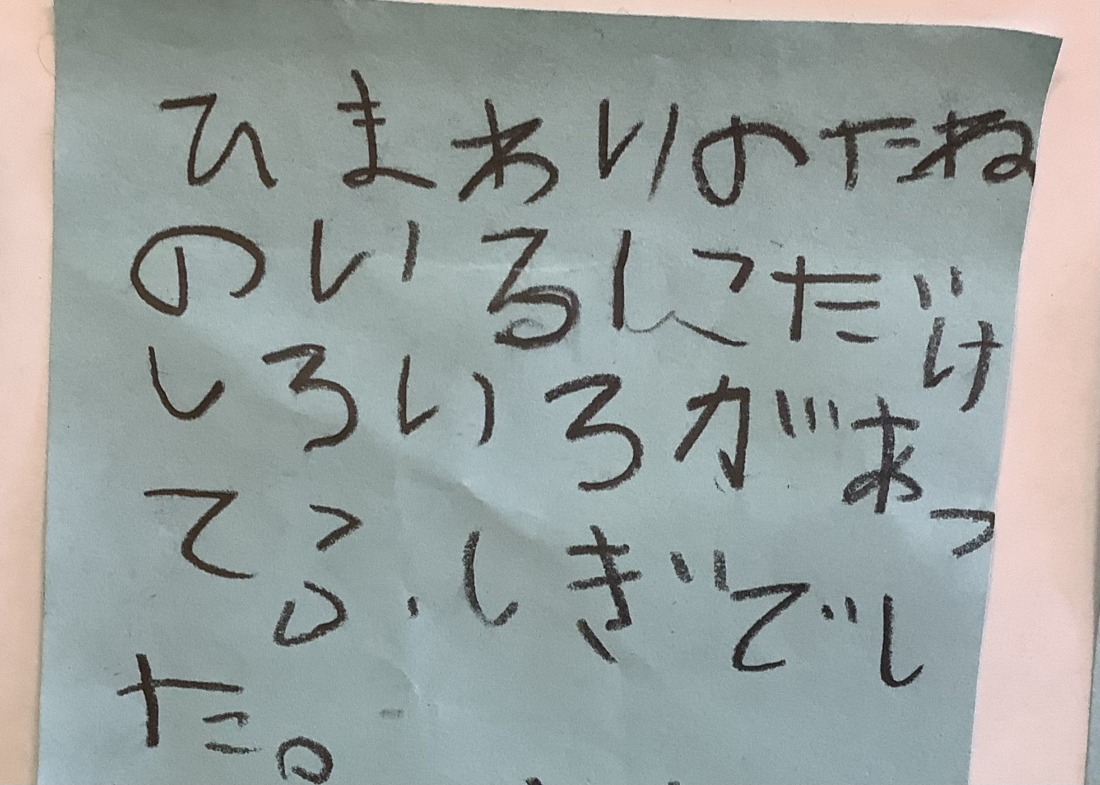 ひまわりのたね
のいるにだけ
しろいろがあっ
てふしぎでし
た。